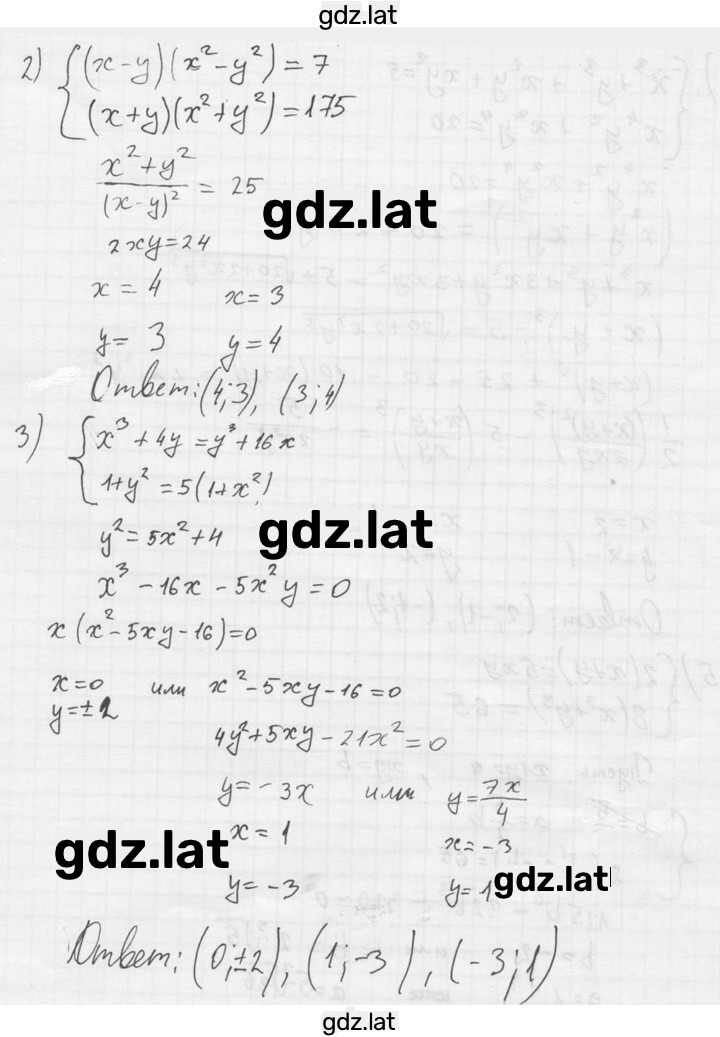 gdz.lat
2) { (x-y)(x²-y²)=7
(x+y)(x²+y²)=175
x²+y² / (x-y)² = 25
gdz.lat
2xy=24
x=4 x=3
y=3 y=4
Ответ: (4;3), (3;4)
3) { x³+4y=y³+16x
1+y²=5(1+x²)
y²=5x²+4
gdz.lat
x³-16x-5x²y=0
x(x²-5xy-16)=0
x=0 или x²-5xy-16=0
y=±2
4y²+5xy-21x²=0
y=-3x или y=7x/4
x=1 x=-3
gdz.lat
y=-3 y=1
gdz.lat
Ответ: (0;±2), (1;-3), (-3;1)
gdz.lat